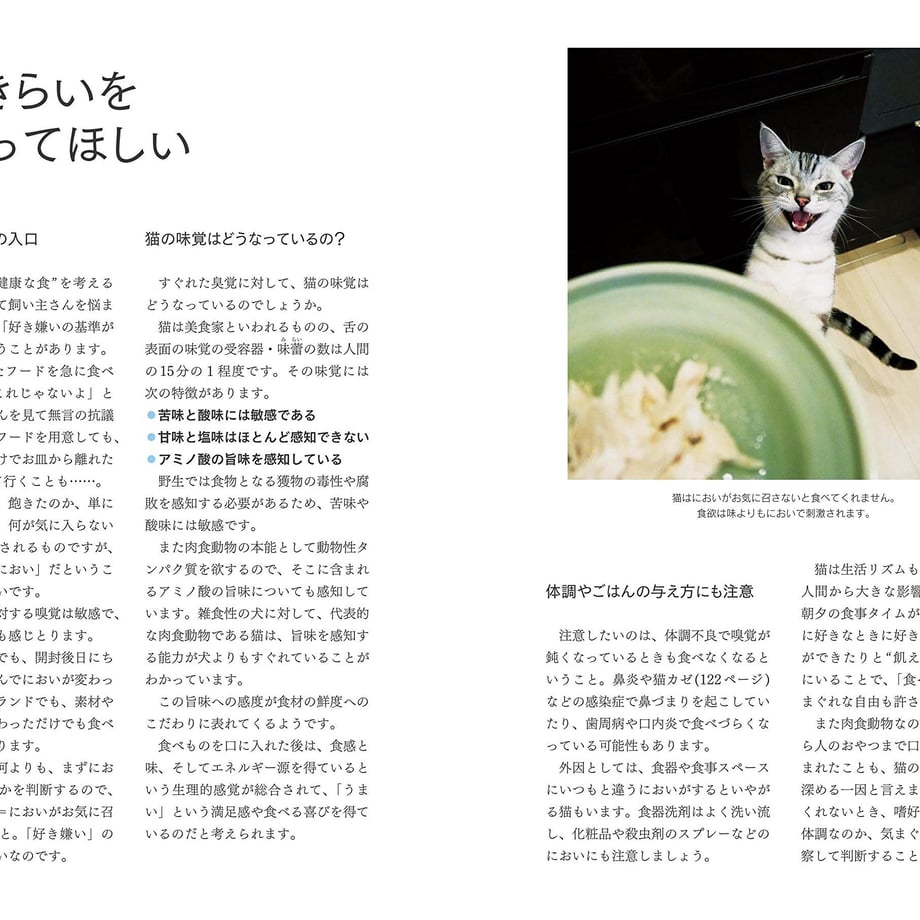 きらいを
ってほしい
の入口
健康な食”を考える
て飼い主さんを悩ま
「好き嫌いの基準が
うことがあります。
たフードを急に食べ
これじゃないよ」と
んを見て無言の抗議
フードを用意しても、
けでお皿から離れた
て行くことも……。
飽きたのか、単に
何が気に入らない
されるものですが、
におい」だというこ
いです。
対する嗅覚は敏感で、
も感じとります。
でも、開封後日にち
んでにおいが変わっ
ランドでも、素材や
わっただけでも食べ
ります。
何よりも、まずにお
かを判断するので、
＝においがお気に召
と。「好き嫌い」の
いなのです。
猫の味覚はどうなっているの？
すぐれた臭覚に対して、猫の味覚は
どうなっているのでしょうか。
猫は美食家といわれるものの、舌の
表面の味覚の受容器・味蕾の数は人間
の15分の1程度です。その味覚には
次の特徴があります。
●苦味と酸味には敏感である
●甘味と塩味はほとんど感知できない
●アミノ酸の旨味を感知している
野生では食物となる獲物の毒性や腐
敗を感知する必要があるため、苦味や
酸味には敏感です。
また肉食動物の本能として動物性タ
ンパク質を欲するので、そこに含まれ
るアミノ酸の旨味についても感知して
います。雑食性の犬に対して、代表的
な肉食動物である猫は、旨味を感知す
る能力が犬よりもすぐれていることが
わかっています。
この旨味への感度が食材の鮮度への
こだわりに表れてくるようです。
食べものを口に入れた後は、食感と
味、そしてエネルギー源を得ていると
いう生理的感覚が総合されて、「うま
い」という満足感や食べる喜びを得て
いるのだと考えられます。
猫はにおいがお気に召さないと食べてくれません。
食欲は味よりもにおいで刺激されます。
体調やごはんの与え方にも注意
注意したいのは、体調不良で嗅覚が
鈍くなっているときも食べなくなると
いうこと。鼻炎や猫カゼ(122ページ)
などの感染症で鼻づまりを起こしてい
たり、歯周病や口内炎で食べづらくな
っている可能性もあります。
外因としては、食器や食事スペース
にいつもと違うにおいがするといやが
る猫もいます。食器洗剤はよく洗い流
し、化粧品や殺虫剤のスプレーなどの
においにも注意しましょう。
猫は生活リズムも
人間から大きな影響
朝夕の食事タイムが
に好きなときに好き
ができたりと“飢え
にいることで、「食べ
まぐれな自由も許さ
また肉食動物なの
ら人のおやつまで口
まれたことも、猫の
深める一因と言えま
くれないとき、嗜好
体調なのか、気まぐ
察して判断すること